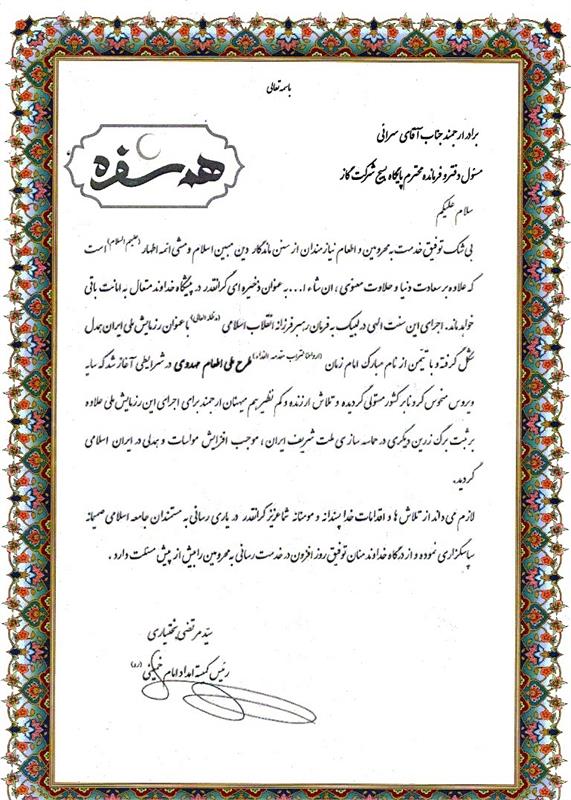 باسمه تعالی
برادر ارجمند جناب آقای سرانی
هم سفره
مسئول دفتر و فرمانده محترم پایگاه بسیج شرکت گاز
سلام علیکم
بی شک توفیق خدمت به محرومین و اطعام نیازمندان از سنن ماندگار دین مبین اسلام و مشی ائمه اطهار (علیهم السلام) است
که علاوه بر سعادت دنیا و حلاوت معنوی ، ان شاء ا... به عنوان ذخیره ای گرانقدر در پیشگاه خداوند متعال به امانت باقی
خواهد ماند. اجرای این سنت الهی در لبیک به فرمان رهبر فرزانه انقلاب اسلامی (مدظله العالی) با عنوان رزمایش ملی ایران همدل
شکل گرفته و با تیمن از نام مبارک امام زمان (ارواحنا لتراب مقدمه الفداء) طرح ملی اطعام مهدوی در شرایطی آغاز شد که سایه
ویروس منحوس کرونا بر کشور مستولی گردیده و تلاش ارزنده و کم نظیر هم میهنان ارجمند برای اجرای این رزمایش ملی علاوه
بر ثبت برگ زرین دیگری در حماسه سازی ملت شریف ایران ، موجب افزایش مواسات و همدلی در ایران اسلامی
گردید.
لازم می داند از تلاش ها و اقدامات خداپسندانه و مومنانه شما عزیز گرانقدر در یاری رسانی به مستمندان جامعه اسلامی صمیمانه
سپاسگزاری نموده و از درگاه خداوند منان توفیق روزافزون در خدمت رسانی به محرومین را بیش از پیش مسئلت دارد .
سید مرتضی بختیاری
رئیس کمیته امداد امام خمینی (ره)